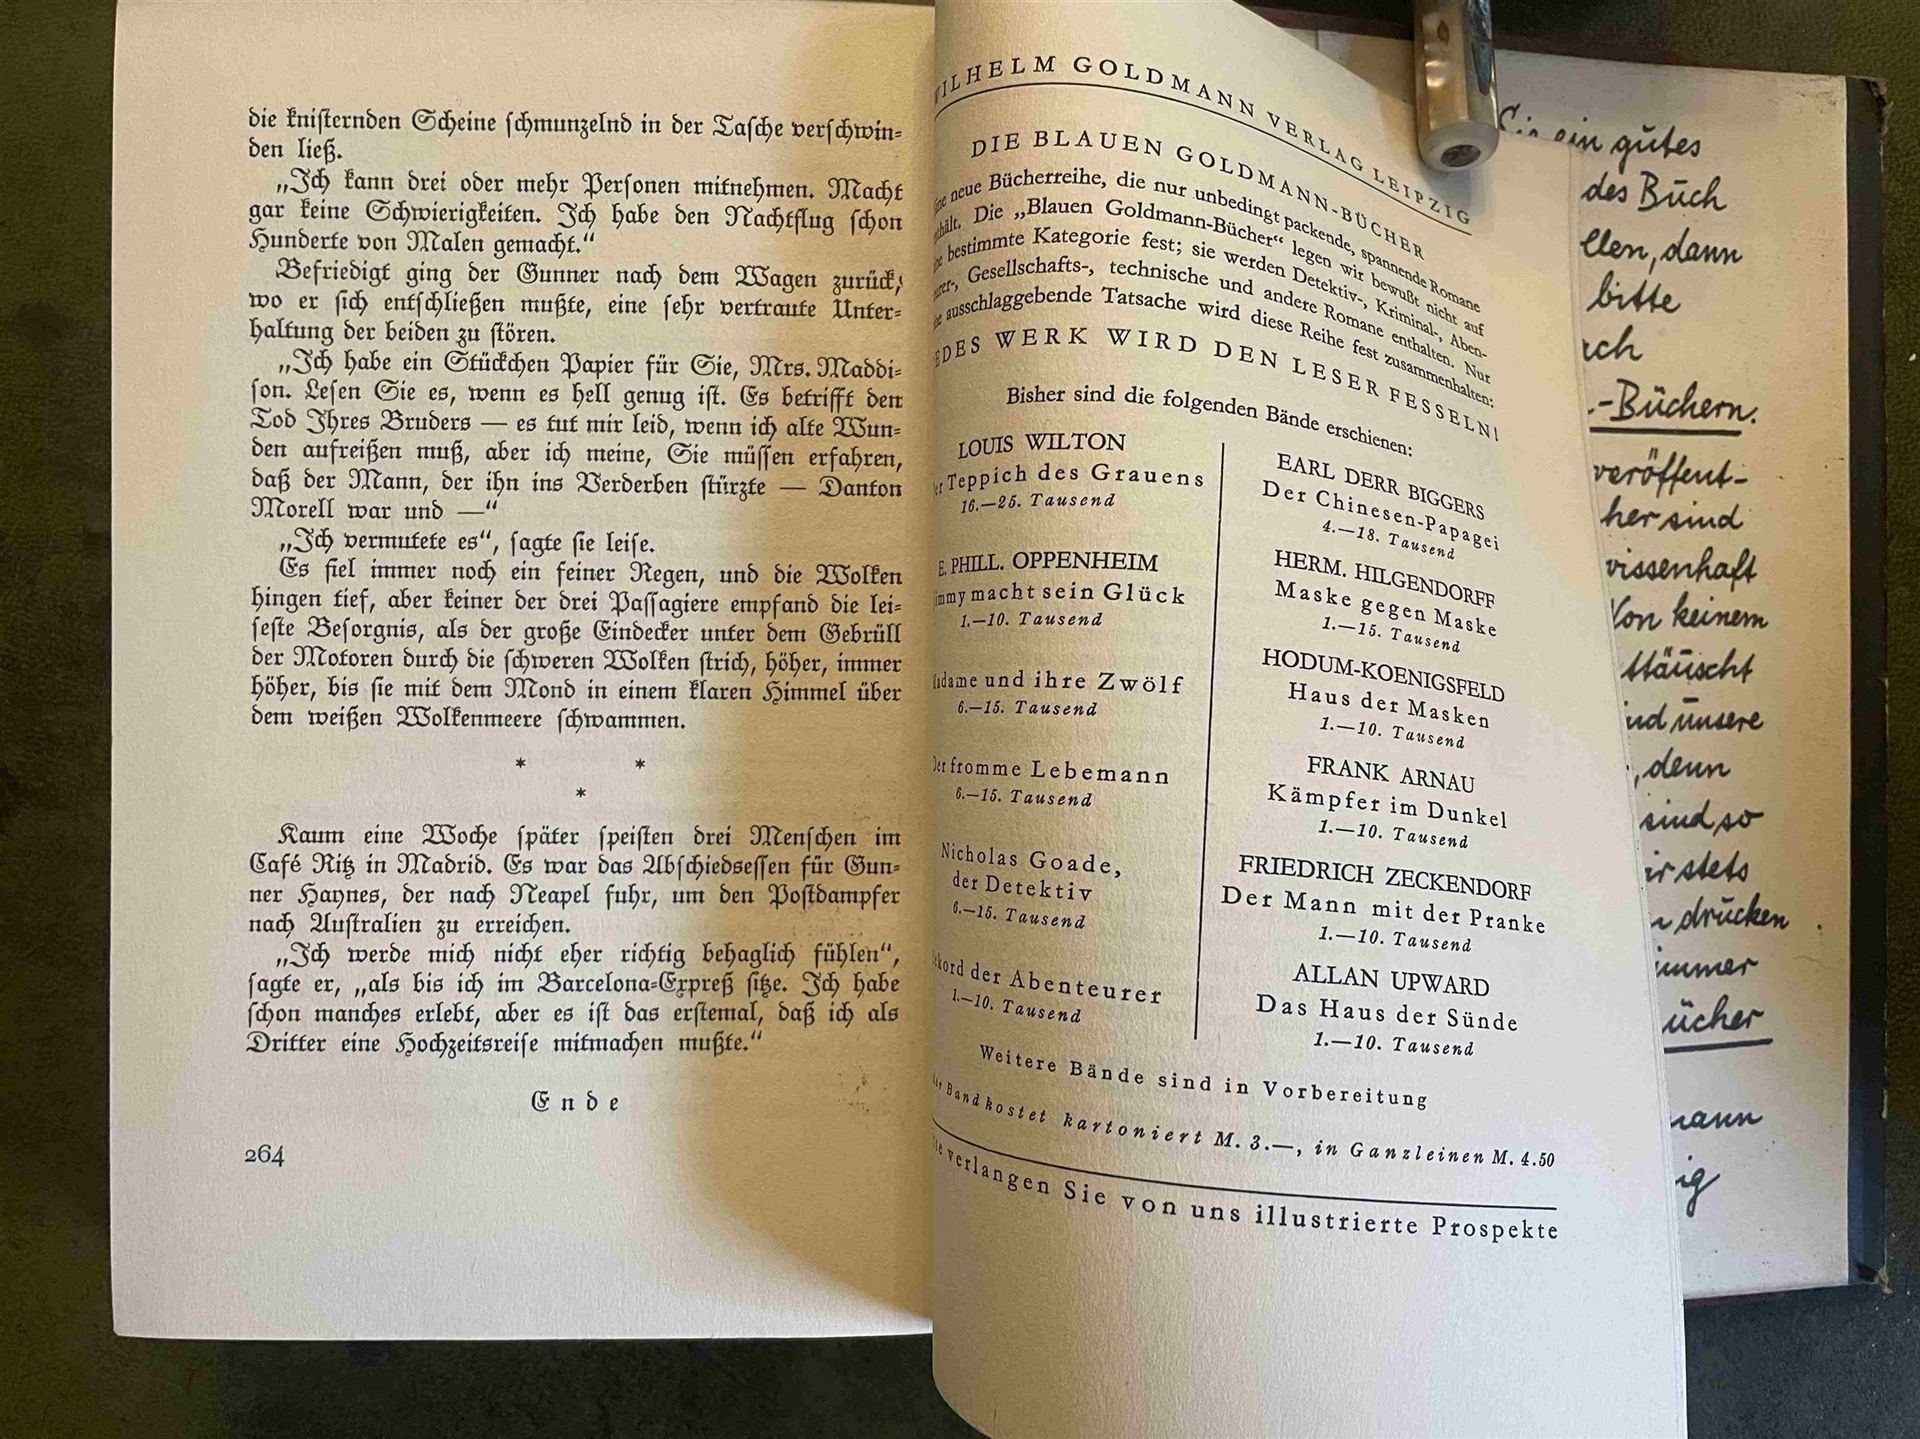 die knisternden Scheine schmunzelnd in der Tasche verschwin-
den ließ.
„Ich kann drei oder mehr Personen mitnehmen. Macht
gar keine Schwierigkeiten. Ich habe den Nachtflug schon
Hunderte von Malen gemacht.“
Befriedigt ging der Gunner nach dem Wagen zurück,
wo er sich entschließen mußte, eine sehr vertraute Unter-
haltung der beiden zu stören.
„Ich habe ein Stückchen Papier für Sie, Mrs. Maddi-
son. Lesen Sie es, wenn es hell genug ist. Es betrifft den
Tod Ihres Bruders — es tut mir leid, wenn ich alte Wun-
den aufreißen muß, aber ich meine, Sie müssen erfahren,
daß der Mann, der ihn ins Verderben stürzte — Danton
Morell war und —“
„Ich vermutete es“, sagte sie leise.
Es fiel immer noch ein feiner Regen, und die Wolken
hingen tief, aber keiner der drei Passagiere empfand die lei-
seste Besorgnis, als der große Eindecker unter dem Gebrüll
der Motoren durch die schweren Wolken strich, höher, immer
höher, bis sie mit dem Mond in einem klaren Himmel über
dem weißen Wolkenmeere schwammen.
* *
*
Kaum eine Woche später speisten drei Menschen im
Café Ritz in Madrid. Es war das Abschiedsessen für Gun-
ner Haynes, der nach Neapel fuhr, um den Postdampfer
nach Australien zu erreichen.
„Ich werde mich nicht eher richtig behaglich fühlen“,
sagte er, „als bis ich im Barcelona-Expreß sitze. Ich habe
schon manches erlebt, aber es ist das erstemal, daß ich als
Dritter eine Hochzeitsreise mitmachen mußte.“
Ende
264
WILHELM GOLDMANN VERLAG LEIPZIG
DIE BLAUEN GOLDMANN-BÜCHER
neue Bücherreihe, die nur unbedingt packende, spannende Romane
enthält. Die „Blauen Goldmann-Bücher“ legen wir bewußt nicht auf
bestimmte Kategorie fest; sie werden Detektiv-, Kriminal-, Aben-
Gesellschafts-, technische und andere Romane enthalten. Nur
ausschlaggebende Tatsache wird diese Reihe fest zusammenhalten:
JEDES WERK WIRD DEN LESER FESSELN!
Bisher sind die folgenden Bände erschienen:
LOUIS WILTON
Der Teppich des Grauens
16.—25. Tausend
E. PHILL. OPPENHEIM
Jimmy macht sein Glück
1.—10. Tausend
Madame und ihre Zwölf
6.—15. Tausend
Der fromme Lebemann
6.—15. Tausend
Nicholas Goade,
der Detektiv
6.—15. Tausend
der Abenteurer
1.—10. Tausend
EARL DERR BIGGERS
Der Chinesen-Papagei
4.—18. Tausend
HERM. HILGENDORFF
Maske gegen Maske
1.—15. Tausend
HODUM-KOENIGSFELD
Haus der Masken
1.—10. Tausend
FRANK ARNAU
Kämpfer im Dunkel
1.—10. Tausend
FRIEDRICH ZECKENDORF
Der Mann mit der Pranke
1.—10. Tausend
ALLAN UPWARD
Das Haus der Sünde
1.—10. Tausend
Weitere Bände sind in Vorbereitung
Band kostet kartoniert M. 3.—, in Ganzleinen M. 4.50
verlangen Sie von uns illustrierte Prospekte
Sie ein gutes
des Buch
llen, dann
bitte
-Büchern.
veröffent-
her sind
wissenhaft
Von keinem
ttäuscht
unsere
, denn
sind so
stets
drücken
immer
ücher
mann
ig